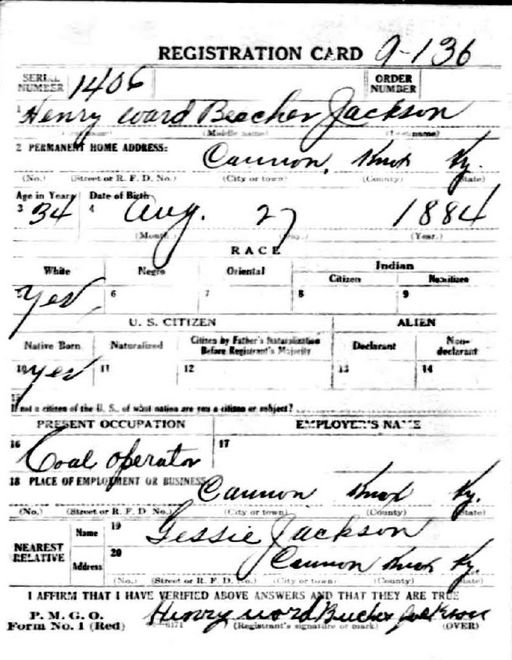 REGISTRATION CARD 9-136
SERIAL NUMBER 1406 ORDER NUMBER
1 Henry Ward Beecher Jackson
(Middle name) (Last name)
2 PERMANENT HOME ADDRESS:
Cannon, Knox Ky.
(No.) (Street or R. F. D. No.) (City or town) (County) (State)
Age in Years Date of Birth
3 34 4 Aug. 27 1884
(Month.) (Day.) (Year.)
RACE
White Negro Oriental Indian
Citizen Noncitizen
5 Yes 6 7 8 9
U. S. CITIZEN ALIEN
Native Born Naturalized Citizen by Father's Naturalization Before Registrant's Majority Declarant Non-declarant
10 Yes 11 12 13 14
15
If not a citizen of the U. S., of what nation are you a citizen or subject?
PRESENT OCCUPATION EMPLOYER'S NAME
16 Coal Operator 17
18 PLACE OF EMPLOYMENT OR BUSINESS
Cannon Knox Ky.
(No.) (Street or R. F. D. No.) (City or town) (County) (State)
NEAREST RELATIVE Name 19 Gessie Jackson
Address 20 Cannon Knox Ky.
(No.) (Street or R. F. D. No.) (City or town) (County) (State)
I AFFIRM THAT I HAVE VERIFIED ABOVE ANSWERS AND THAT THEY ARE TRUE
P. M. G. O.
Form No. 1 (Red) Henry Ward Beecher Jackson
(Registrant's signature or mark) (OVER)